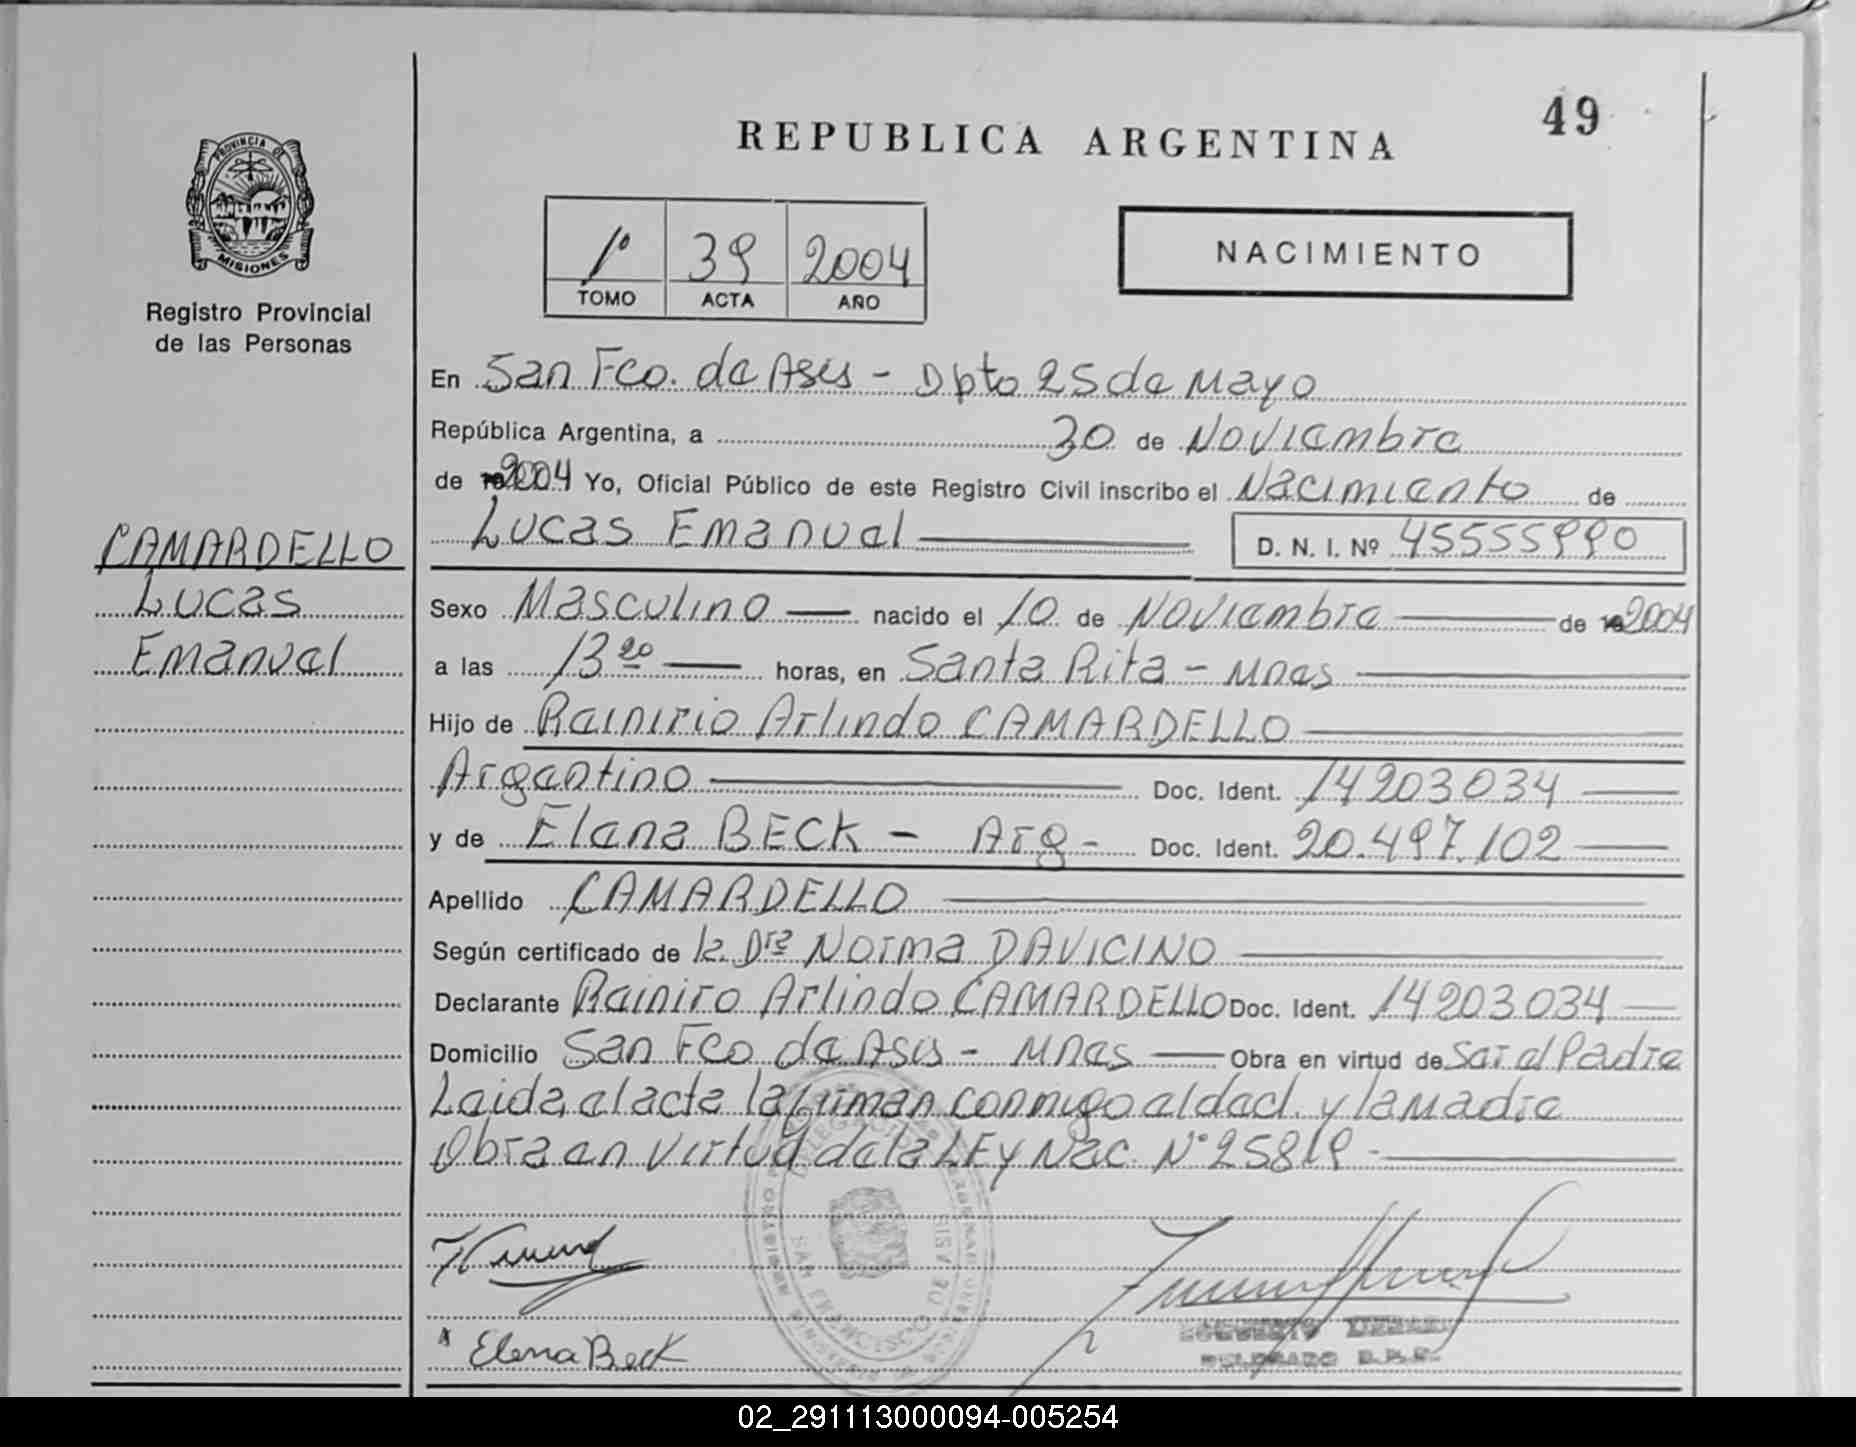 49
REPUBLICA ARGENTINA
PROVINCIA DE
MISIONES
Registro Provincial
de las Personas
1º 39 2004
TOMO ACTA AÑO
NACIMIENTO
En San Fco. de Asis - Dpto 25 de Mayo
República Argentina, a 30 de Noviembre
de 2004 Yo, Oficial Público de este Registro Civil inscribo el Nacimiento de
Lucas Emanuel D. N. I. Nº 45555990
CAMARDELLO
Lucas
Emanuel
Sexo Masculino nacido el 10 de Noviembre de 2004
a las 13 20 horas, en Santa Rita - Mnes
Hijo de Rainirio Arlindo CAMARDELLO
Argentino Doc. Ident. 14203034
y de Elena BECK - Arg - Doc. Ident. 20.497.102
Apellido CAMARDELLO
Según certificado de la Dra Norma DAVICINO
Declarante Rainiro Arlindo CAMARDELLO Doc. Ident. 14203034
Domicilio San Fco de Asis - Mnes Obra en virtud de Ser el Padre
Leida el acta la firman conmigo el decl. y la Madre
Obra en virtud de la LEy Nac. Nº 25819 -
SAN FRANCISCO DE ASIS
Elena Beck
02_291113000094-005254